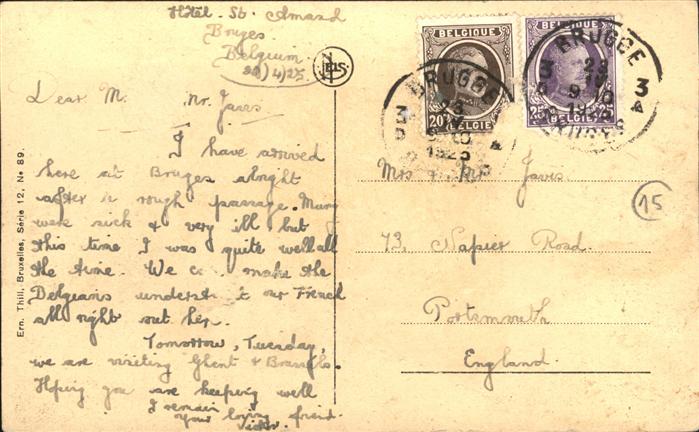 Hotel St. Amand
Bruges
Belgium
20/4/25
Dear M. Mr. Javis
I have arrived
here at Bruges alright
after a rough passage. Many
were sick & very ill but
this time I was quite well all
the time. We make the
Belgeans underst our French
all right out her.
Tomorrow, Tuesday,
we are visiting Ghent &
Hoping you are keeping well
I remain
your loving freind.
Ern. Thill, Bruxelles, Série 12, No 89.
NELS
BELGIQUE
20
BELGIE
BELGIQUE
25
BELGIE
BRUGGE
3
1925
BRUGGE
3
A
1925
BRUGES
15
Mrs Mr Javis
73, Napier Road.
Portsmouth
England.